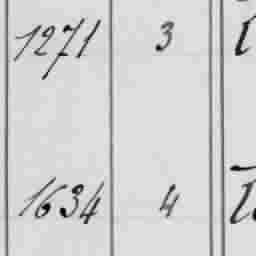 1271 3
1634 4